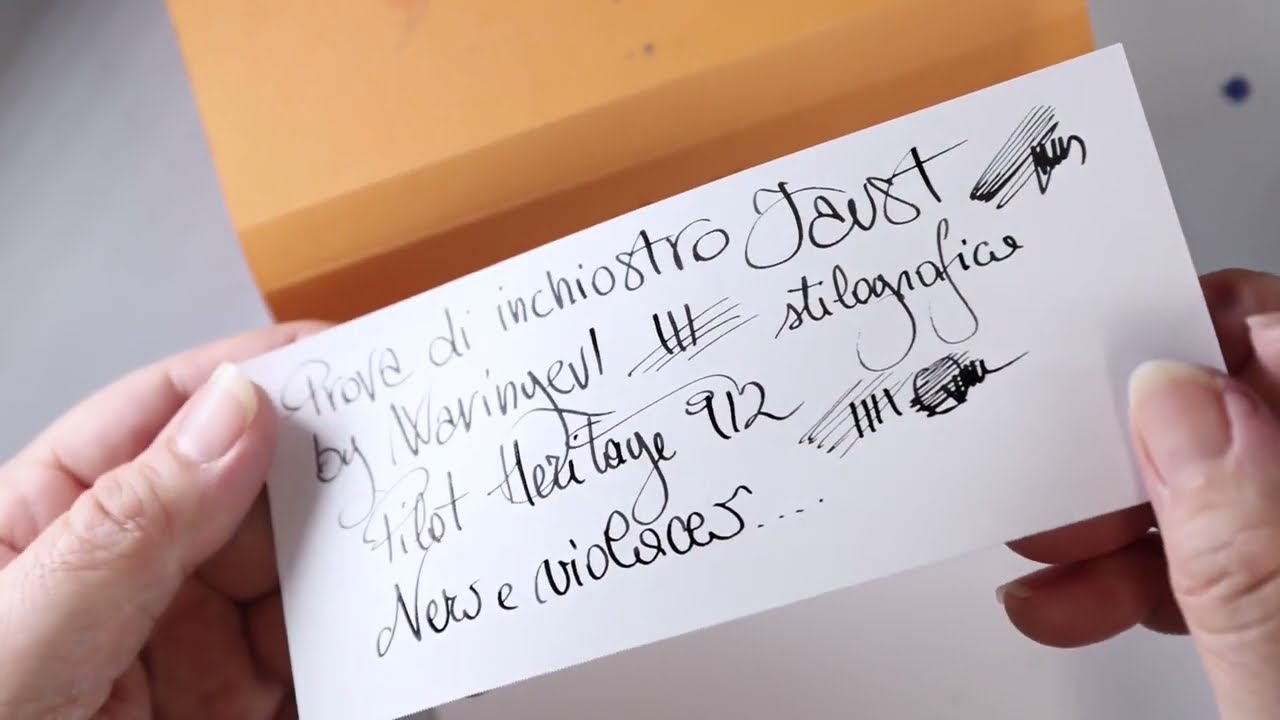 Prova di inchiostro Faust
by Waringeul stilografica
Pilot Heritage 912
Nero e violaceo....